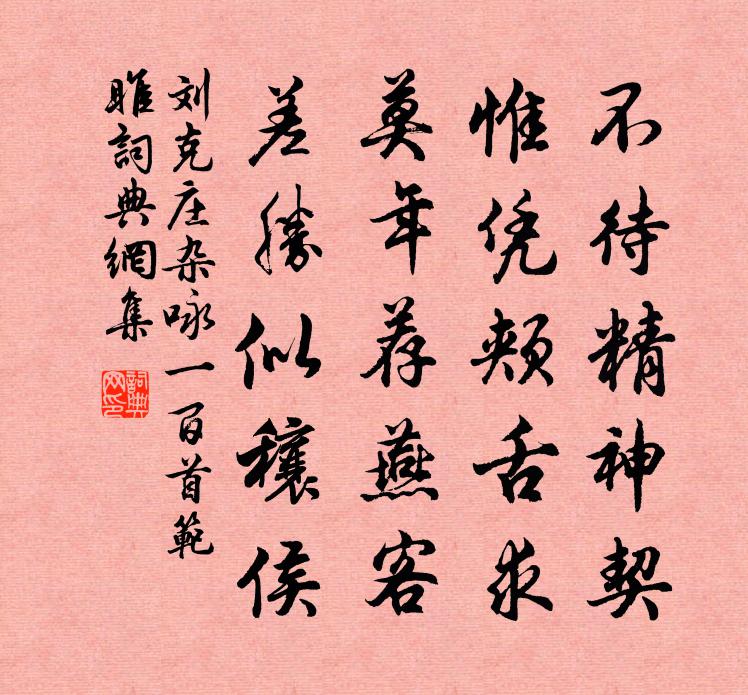 不待精神契
惟凭颊舌求
莫年荐燕客
差勝似穰侯
刘克庄杂咏一百首範
睢詞典網集
詞典网印